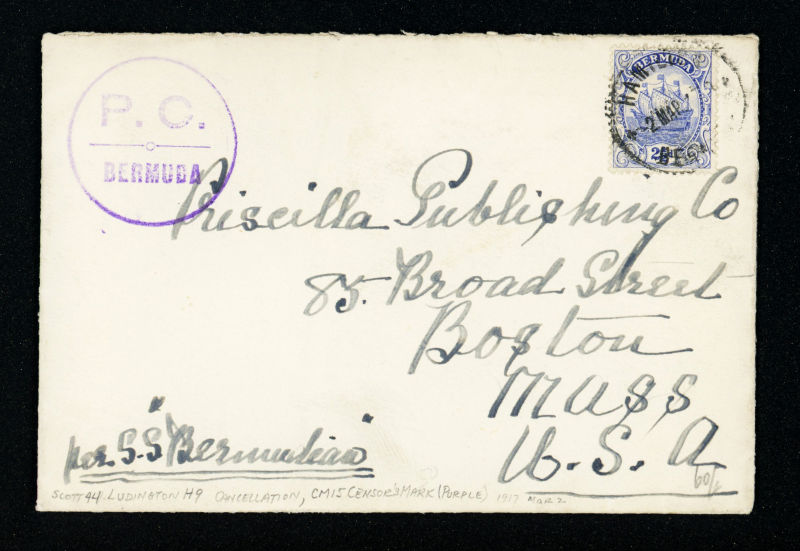 P. C.
BERMUDA
BERMUDA
HAMIL
2 MAR
BE
2½
Priscilla Publishing Co
85. Broad Street
Boston
Mass
U. S. A
per S.S "Bermudian"
60/-
SCOTT 44 LUDINGTON H9 CANCELLATION, CM15 CENSOR'S MARK (PURPLE) 1917 MAR 2